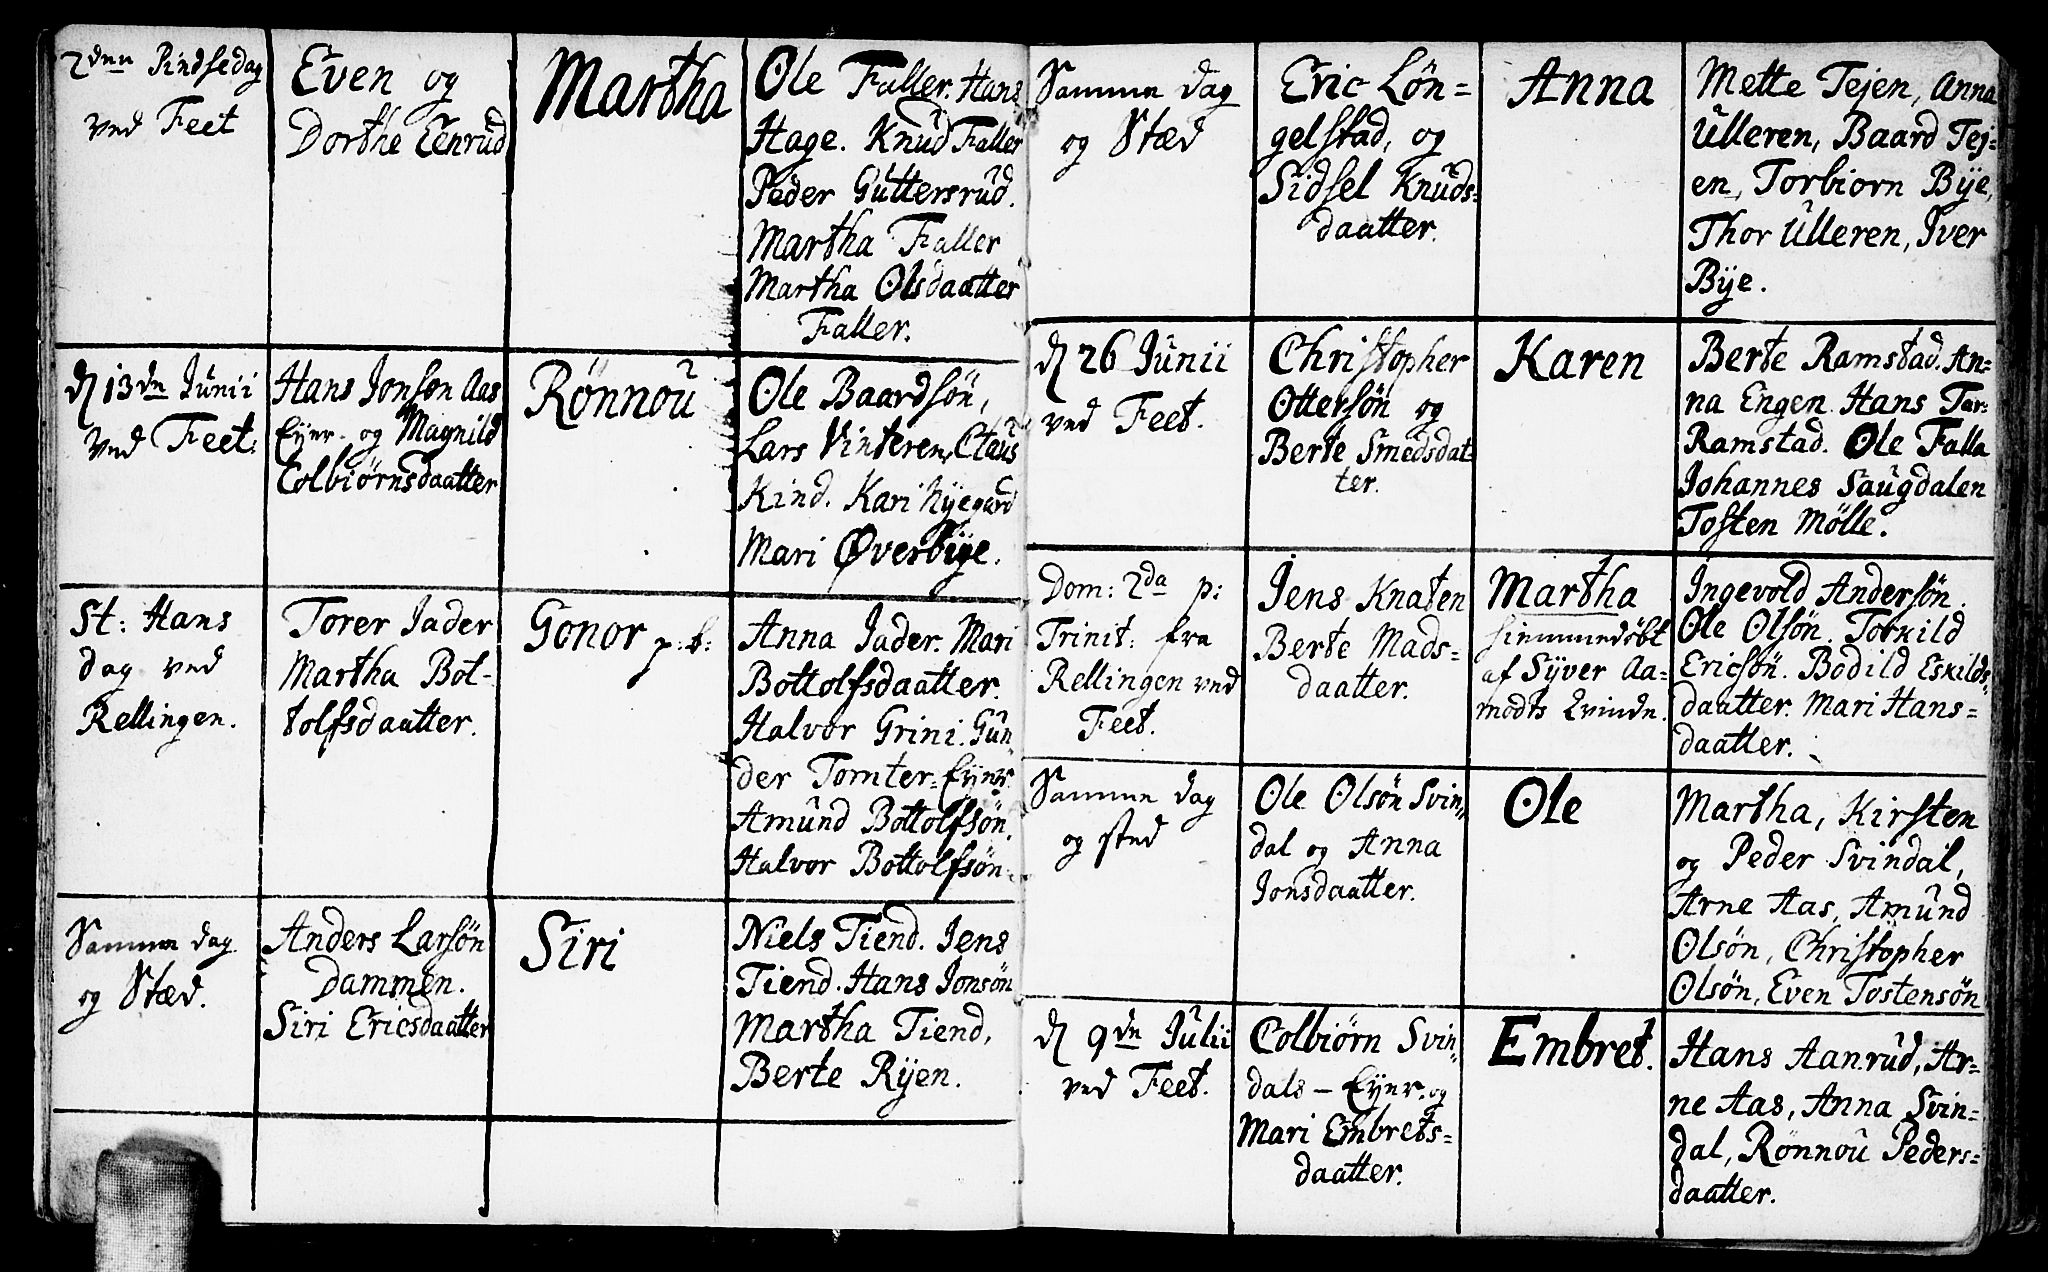 2den Pindsedag
ved Feet
Even og
Dorthe Eenrud
Martha
Ole Faller. Hans
Hage. Knud Faller
Peder Guttersrud.
Martha Faller
Martha Olsdaatter
Faller.
d 13de Junii
ved Feet:
Hans Jonson Aas
Eyer- og Magnild
Colbiørnsdaatter
Rønnou
Ole Baardsøn,
Lars Vinteren, Claus
Kind. Kari Nÿegard
Mari Øverbÿe.
St: Hans
dag ved
Rellingen.
Torer Jader
Martha Bot-
tolfsdaatter.
Gonor p: b:
Anna Jader. Mari
Bottolfsdaatter.
Halvor Grini. Gun-
der Tomter-Eyer.
Amund Bottolfsøn.
Halvor Bottolfsøn.
Samme dag
og Stæd.
Anders Larsøn
Dammen.
Siri Ericsdaatter
Siri
Niels Tiend. Jens
Tiend. Hans Jonsøn
Martha Tiend,
Berte Rÿen.
Samme dag
og Stæd
Eric Løn=
gelstad, og
Sidsel Knuds=
daatter.
Anna
Mette Tejen, Anna
Ulleren, Baard Tej=
en, Torbiorn Bÿe,
Thor Ulleren, Iver
Bÿe.
d 26 Junii
ved Feet.
Christopher
Ottersøn og
Berte Smedsdat-
ter.
Karen
Berte Ramstad. An=
na Engen. Hans Tar=
Ramstad. Ole Falla
Johannes Saugdalen
Tosten Mölle.
Dom: 2da p:
Trinit: fra
Rellingen ved
Feet.
Jens Knaten
Berte Mads=
daatter.
Martha
hiemmedøbt
af Sÿver Aa=
modts Qvinde.
Ingevold Andersøn.
Ole Olsøn. Torkild
Ericsøn. Bodild Eskilds=
daatter. Mari Hans=
daatter.
Samme dag
og sted
Ole Olsøn Svin=
dal og Anna
Jonsdaatter.
Ole
Martha, Kirsten
og Peder Svindal,
Arne Aas, Amund
Olsøn, Christopher
Olsøn, Even Tostensøn
d 9de Julii
ved Feet.
Colbiørn Svin=
dals - Eyer. og
Mari Embrets=
daatter.
Embret.
Hans Aanrud, Ar=
ne Aas, Anna Svin=
dal, Rønnou Peders=
daatter.